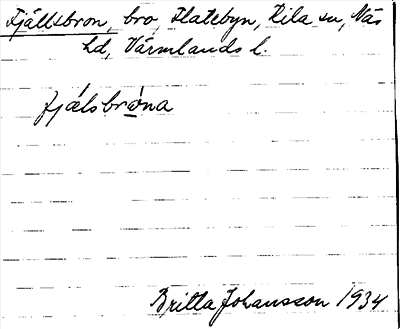 Fjällsbron, bro, Slatebyn, Kila sn, Näs
hd, Värmlands l.
fjálsbrǿ̱na
Britta Johansson 1934